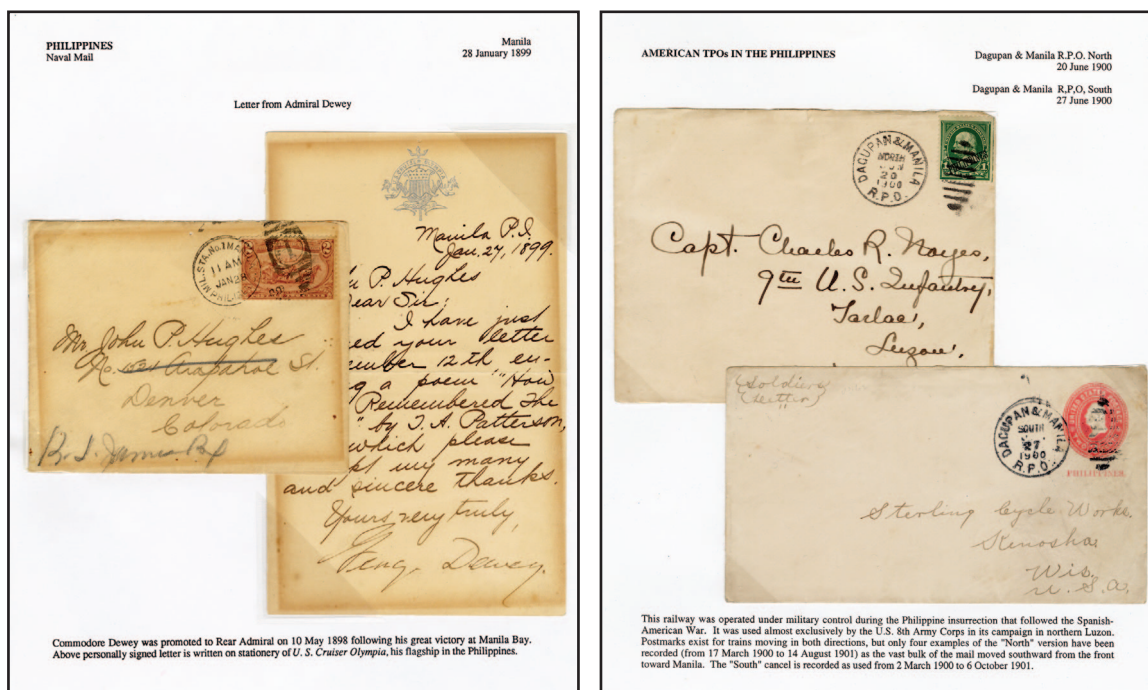 PHILIPPINES
Naval Mail
Manila
28 January 1899
Letter from Admiral Dewey
MIL. STA. No. 1 MA
11 AM
JAN 28
PHIL
Mr. John P. Hughes
No. St.
Denver
Colorado
Manila P.I.
Jan. 27, 1899.
P. Hughes
ear Sir:
I have just
ed your letter
ember 12th en-
g a poem "How
Remembered The
" by T. A. Patterson,
which please
pt my many
and sincere thanks.
Yours very truly,
Dewey.
Commodore Dewey was promoted to Rear Admiral on 10 May 1898 following his great victory at Manila Bay.
Above personally signed letter is written on stationery of U. S. Cruiser Olympia, his flagship in the Philippines.
AMERICAN TPOs IN THE PHILIPPINES
Dagupan & Manila R.P.O. North
20 June 1900
Dagupan & Manila R,P,O, South
27 June 1900
DAGUPAN & MANILA
NORTH
20
1900
R.P.O.
Capt. Charles R. Noyes,
9th U.S. Infantry,
Tarlac,
Luzon,
(Soldiers
Letter)
DAGUPAN & MANILA
SOUTH
27
1900
R.P.O.
PHILIPPINES.
Sterling Cycle Works.
Kenosha
Wis.
U.S.A.
This railway was operated under military control during the Philippine insurrection that followed the Spanish-
American War. It was used almost exclusively by the U.S. 8th Army Corps in its campaign in northern Luzon.
Postmarks exist for trains moving in both directions, but only four examples of the "North" version have been
recorded (from 17 March 1900 to 14 August 1901) as the vast bulk of the mail moved southward from the front
toward Manila. The "South" cancel is recorded as used from 2 March 1900 to 6 October 1901.